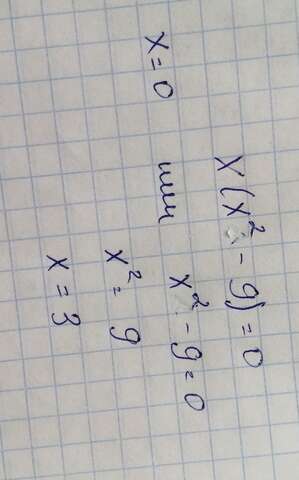 x(x² - 9) = 0
x = 0 или x² - 9 = 0
x² = 9
x = 3